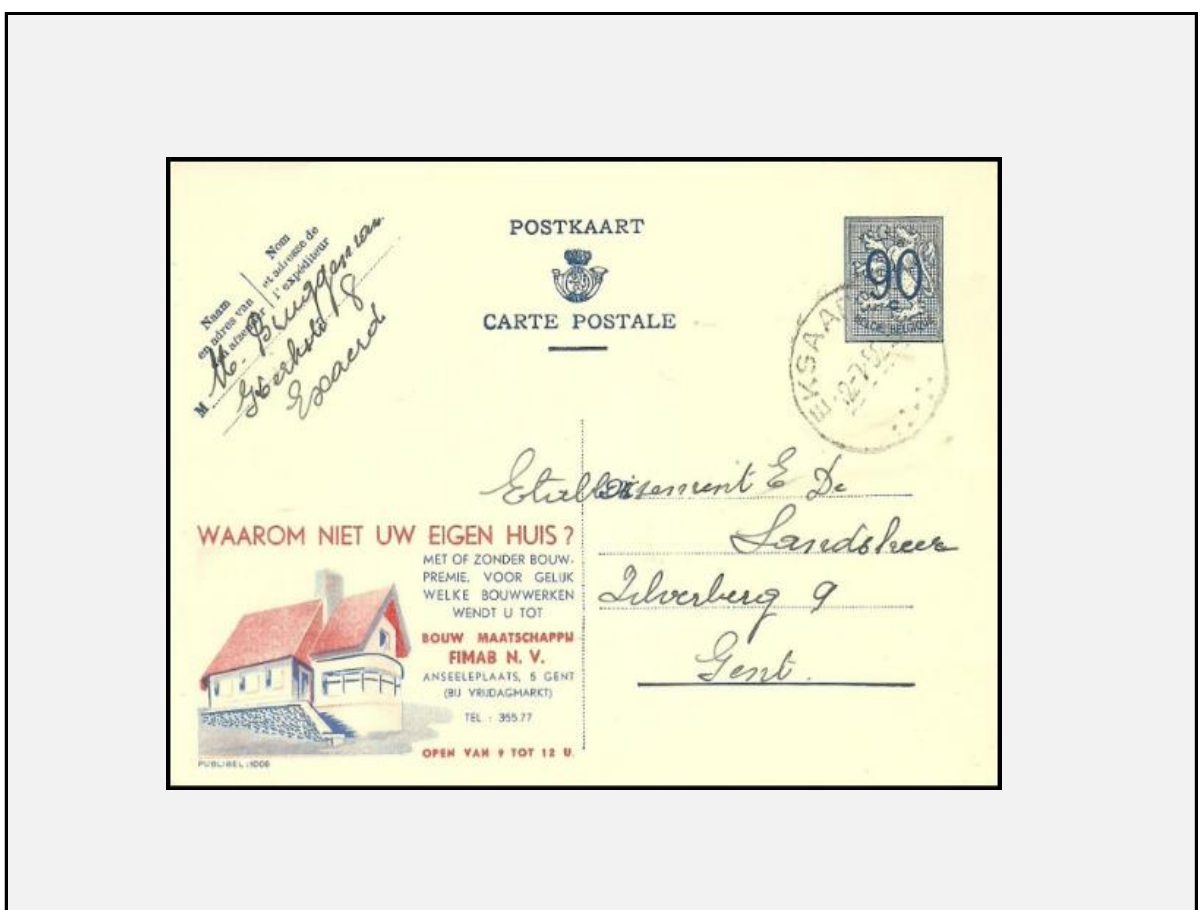 POSTKAART
CARTE POSTALE
Naam
en adres van
afzender
Nom
et adresse de
l'expéditeur
M
Bruggeman
8
Exaerd
90
c
BELGIE-BELGIQUE
EKSAAR
12-7-5
Etablissement E De
Landsheer
Zilverberg 9
Gent.
WAAROM NIET UW EIGEN HUIS ?
MET OF ZONDER BOUW-
PREMIE, VOOR GELIJK
WELKE BOUWWERKEN
WENDT U TOT
BOUW MAATSCHAPPIJ
FIMAB N. V.
ANSEELEPLAATS, 5 GENT
(BIJ VRIJDAGMARKT)
TEL : 355.77
OPEN VAN 9 TOT 12 U.
PUBLIBEL : 1006